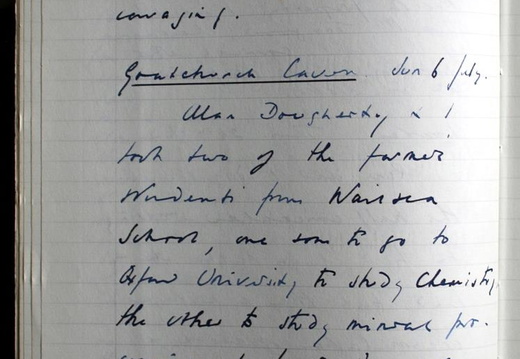 couraging.
Goatchurch Cavern. Sun 6 July.
Alan Dougherty & I
took two of the former
students from Wairsea
School, one soon to go to
Oxford University to study Chemistry,
the other to study mineral pro-